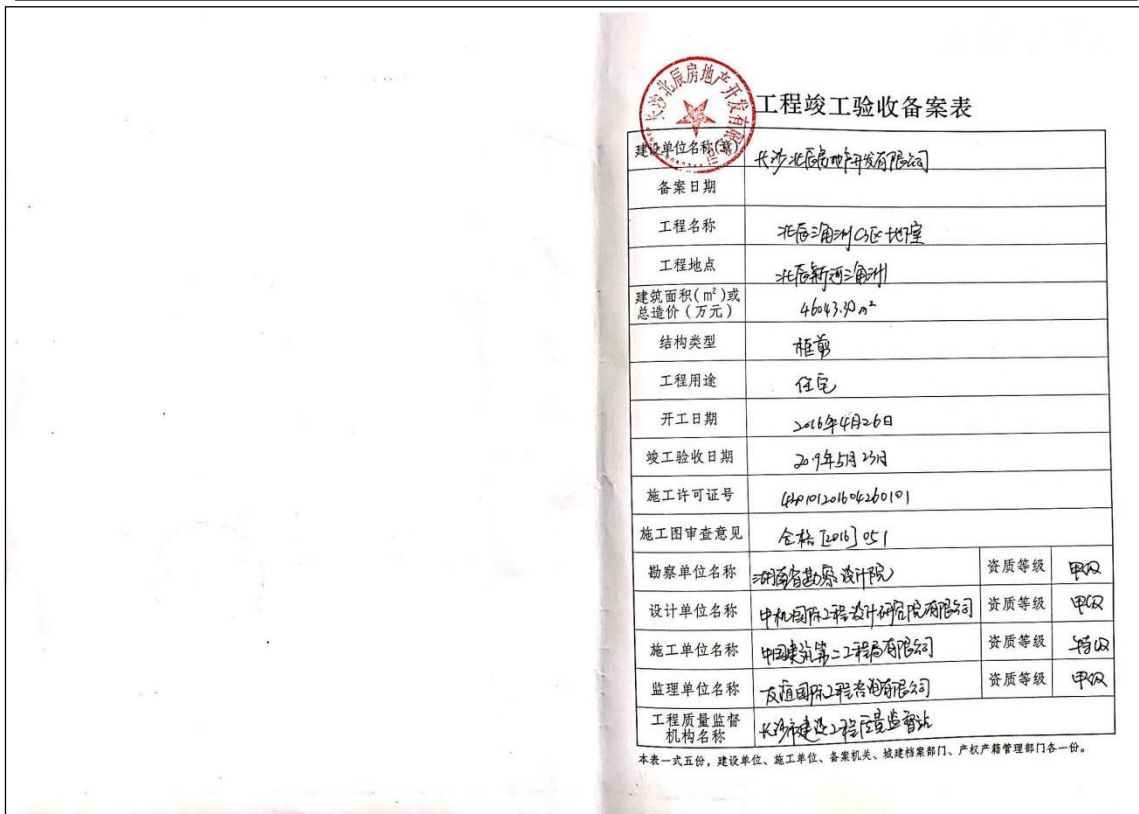 长沙北辰房地产开发有限公司
工程竣工验收备案表
建设单位名称(章) 长沙北辰房地产开发有限公司
备案日期
工程名称 北辰三角洲C3区地下室
工程地点 北辰新河三角洲
建筑面积(m²)或总造价(万元) 46043.30m²
结构类型 框剪
工程用途 住宅
开工日期 2016年4月26日
竣工验收日期 2019年5月23日
施工许可证号
施工图审查意见 合格[2016]051
勘察单位名称 湖南省勘察设计院 资质等级 甲级
设计单位名称 中机国际工程设计研究院有限公司 资质等级 甲级
施工单位名称 中国建筑第二工程局有限公司 资质等级 特级
监理单位名称 友谊国际工程咨询有限公司 资质等级 甲级
工程质量监督机构名称 长沙市建设工程质量监督站
本表一式五份，建设单位、施工单位、备案机关、城建档案部门、产权产籍管理部门各一份。